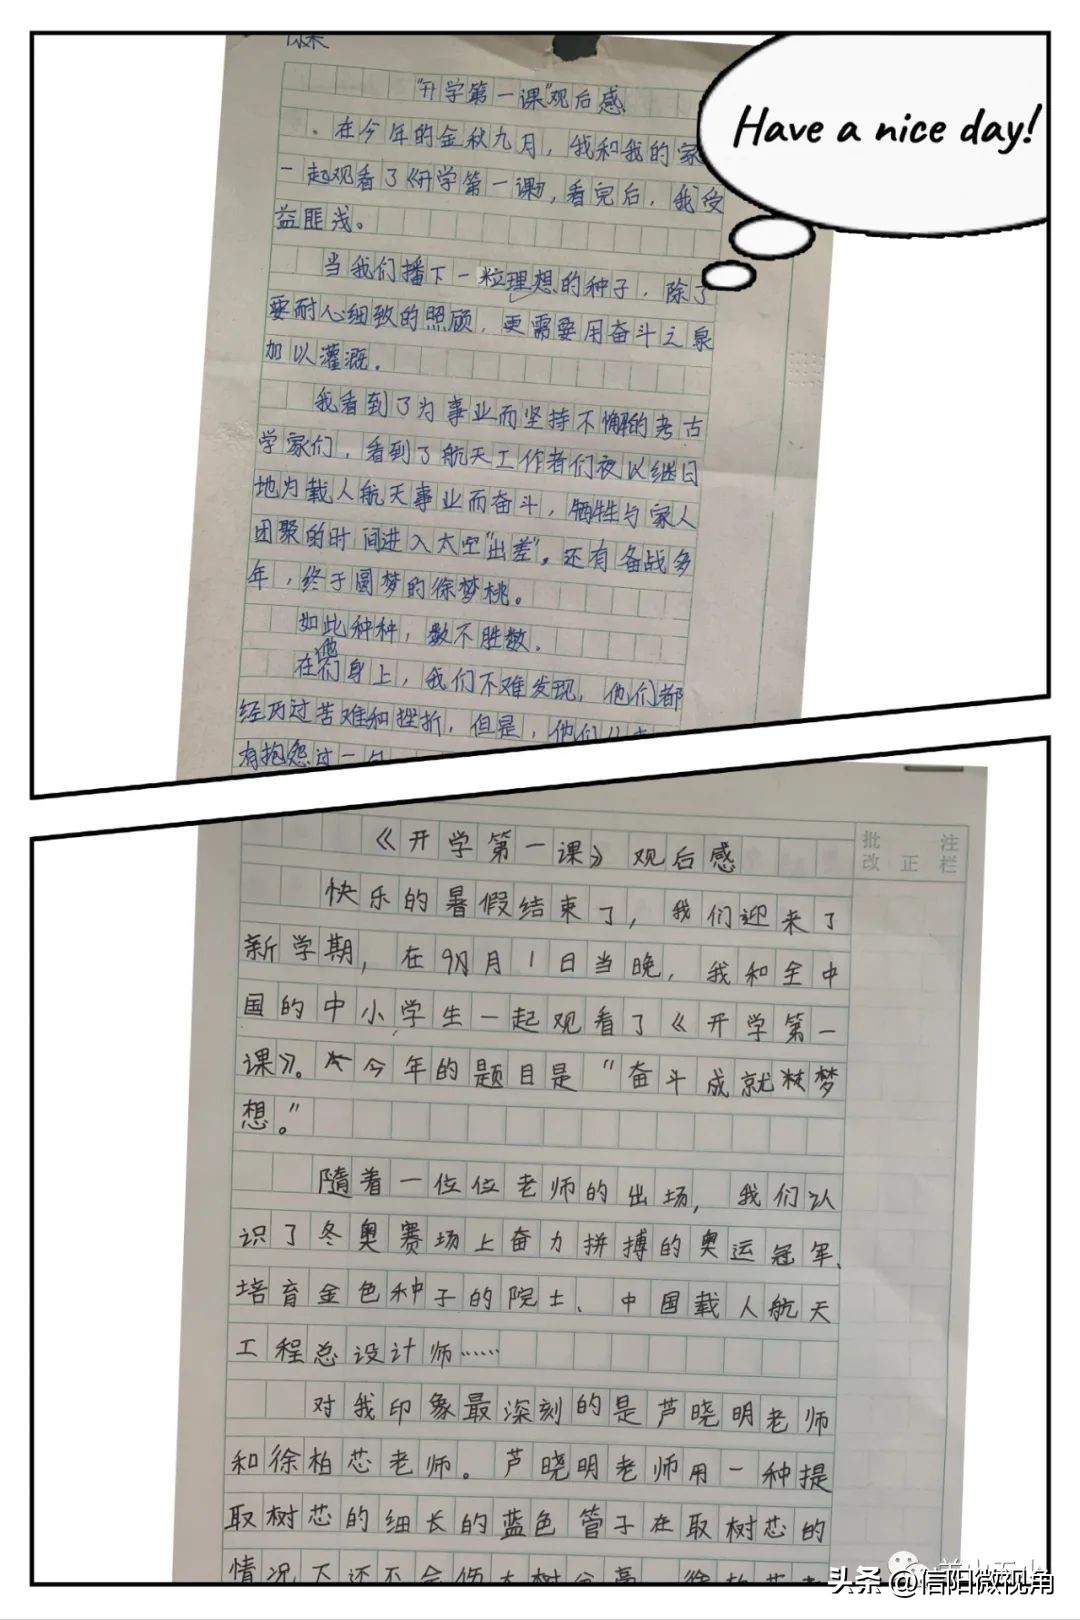 "开学第一课"观后感
在今年的金秋九月，我和我的家
一起观看了《开学第一课》，看完后，我受
益匪浅。
当我们播下一粒理想的种子，除了
要耐心细致的照顾，更需要用奋斗之泉
加以灌溉。
我看到了为事业而坚持不懈的考古
学家们，看到了航天工作者们夜以继日
地为载人航天事业而奋斗，牺牲与家人
团聚的时间进入太空"出差"。还有备战多
年，终于圆梦的徐梦桃。
如此种种，数不胜数。
在他们身上，我们不难发现，他们都
经历过苦难和挫折，但是，他们从
有抱怨过一句
Have a nice day!
批注
改正栏
《开学第一课》观后感
快乐的暑假结束了，我们迎来了
新学期，在9月1日当晚，我和全中
国的中小学生一起观看了《开学第一
课》。今年的题目是"奋斗成就梦
想。"
随着一位位老师的出场，我们认
识了冬奥赛场上奋力拼搏的奥运冠军、
培育金色种子的院士、中国载人航天
工程总设计师……
对我印象最深刻的是芦晓明老师
和徐柏芯老师。芦晓明老师用一种提
取树芯的细长的蓝色管子在取树芯的
情况下还不会伤大树分毫
头条 @信阳微视角